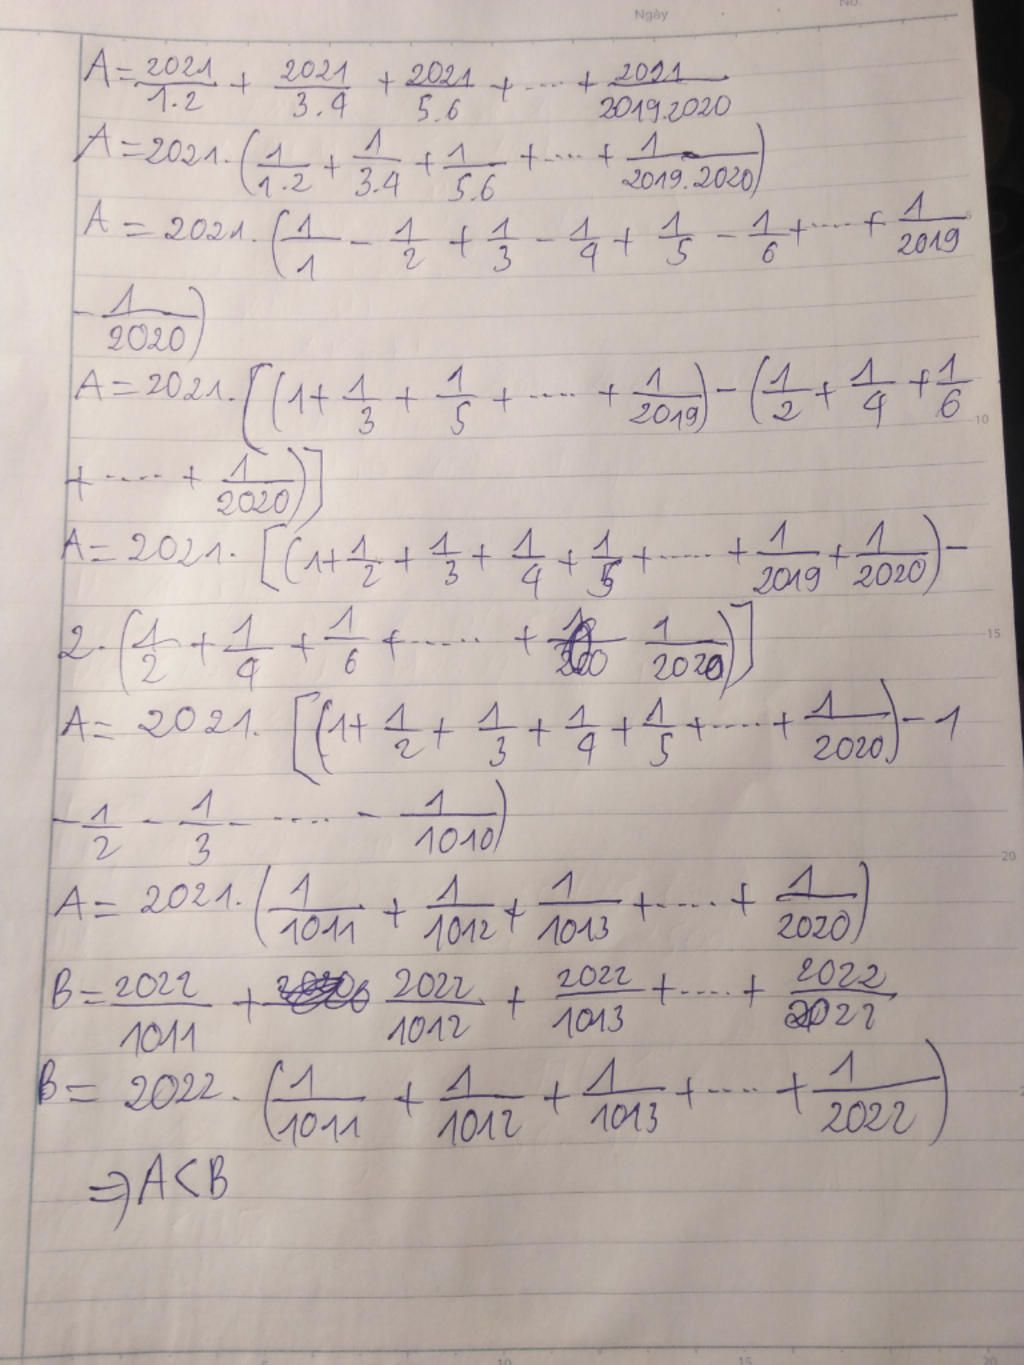 Ngày
No.
A = 2021/1.2 + 2021/3.4 + 2021/5.6 + ..... + 2021/2019.2020
A = 2021. (1/1.2 + 1/3.4 + 1/5.6 + ..... + 1/2019.2020)
A = 2021. (1/1 - 1/2 + 1/3 - 1/4 + 1/5 - 1/6 + ..... + 1/2019
- 1/2020)
A = 2021. [(1 + 1/3 + 1/5 + ..... + 1/2019) - (1/2 + 1/4 + 1/6
10
+ ..... + 1/2020)]
A = 2021. [(1 + 1/2 + 1/3 + 1/4 + 1/5 + ..... + 1/2019 + 1/2020) -
2. (1/2 + 1/4 + 1/6 + ..... + 1/2020)]
15
A = 2021. [(1 + 1/2 + 1/3 + 1/4 + 1/5 + ..... + 1/2020) - 1
- 1/2 - 1/3 - ..... - 1/1010)
20
A = 2021. (1/1011 + 1/1012 + 1/1013 + ..... + 1/2020)
B = 2022/1011 + 2022/1012 + 2022/1013 + ..... + 2022/2022
B = 2022. (1/1011 + 1/1012 + 1/1013 + ..... + 1/2022)
⇒ A < B
10 15 20